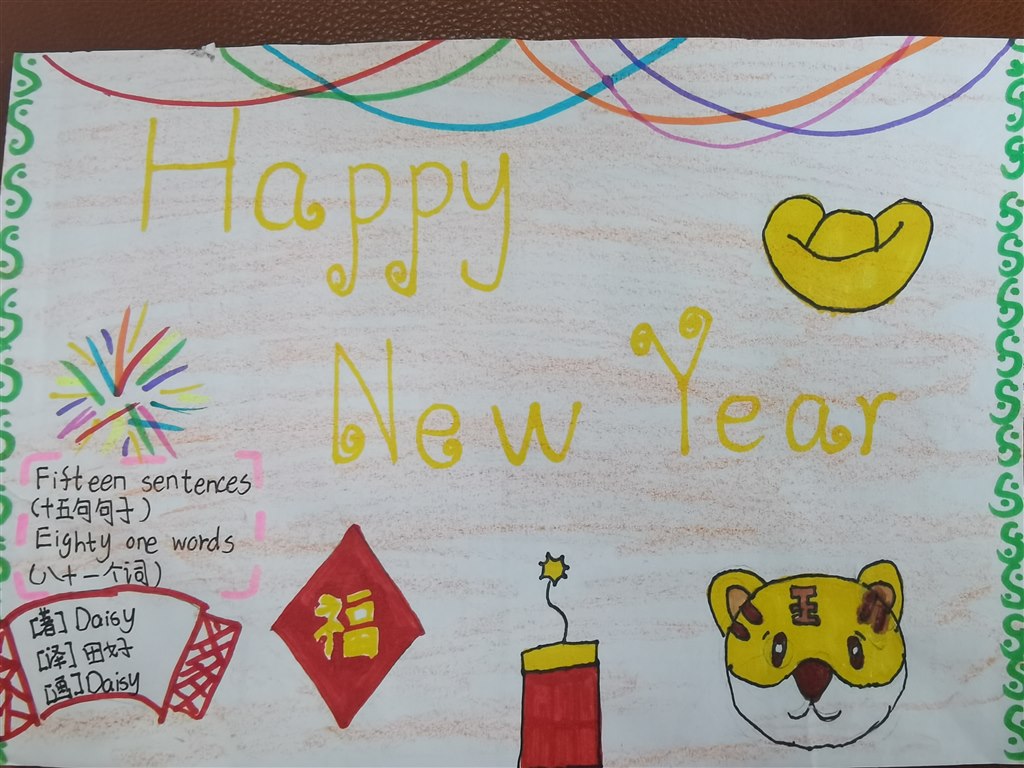 Happy
New Year
Fifteen sentences
(十五句句子)
Eighty one words
(八十一个词)
[著] Daisy
[译] 田好
[画] Daisy
福
王